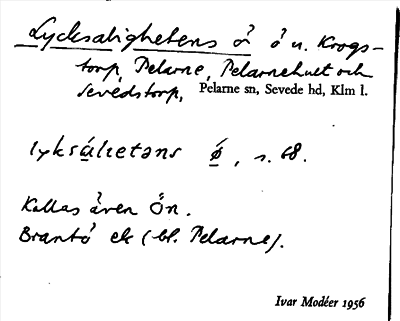 Lycksalighetens ö ö u. Krogs-
torp, Pelarne, Pelarnehult och
Sevedstorp, Pelarne sn, Sevede hd, Klm l.
lyksálhetəns ǿ, s. 68.
Kallas även Ön.
Brantö ek (bl. Pelarne).
Ivar Modéer 1956